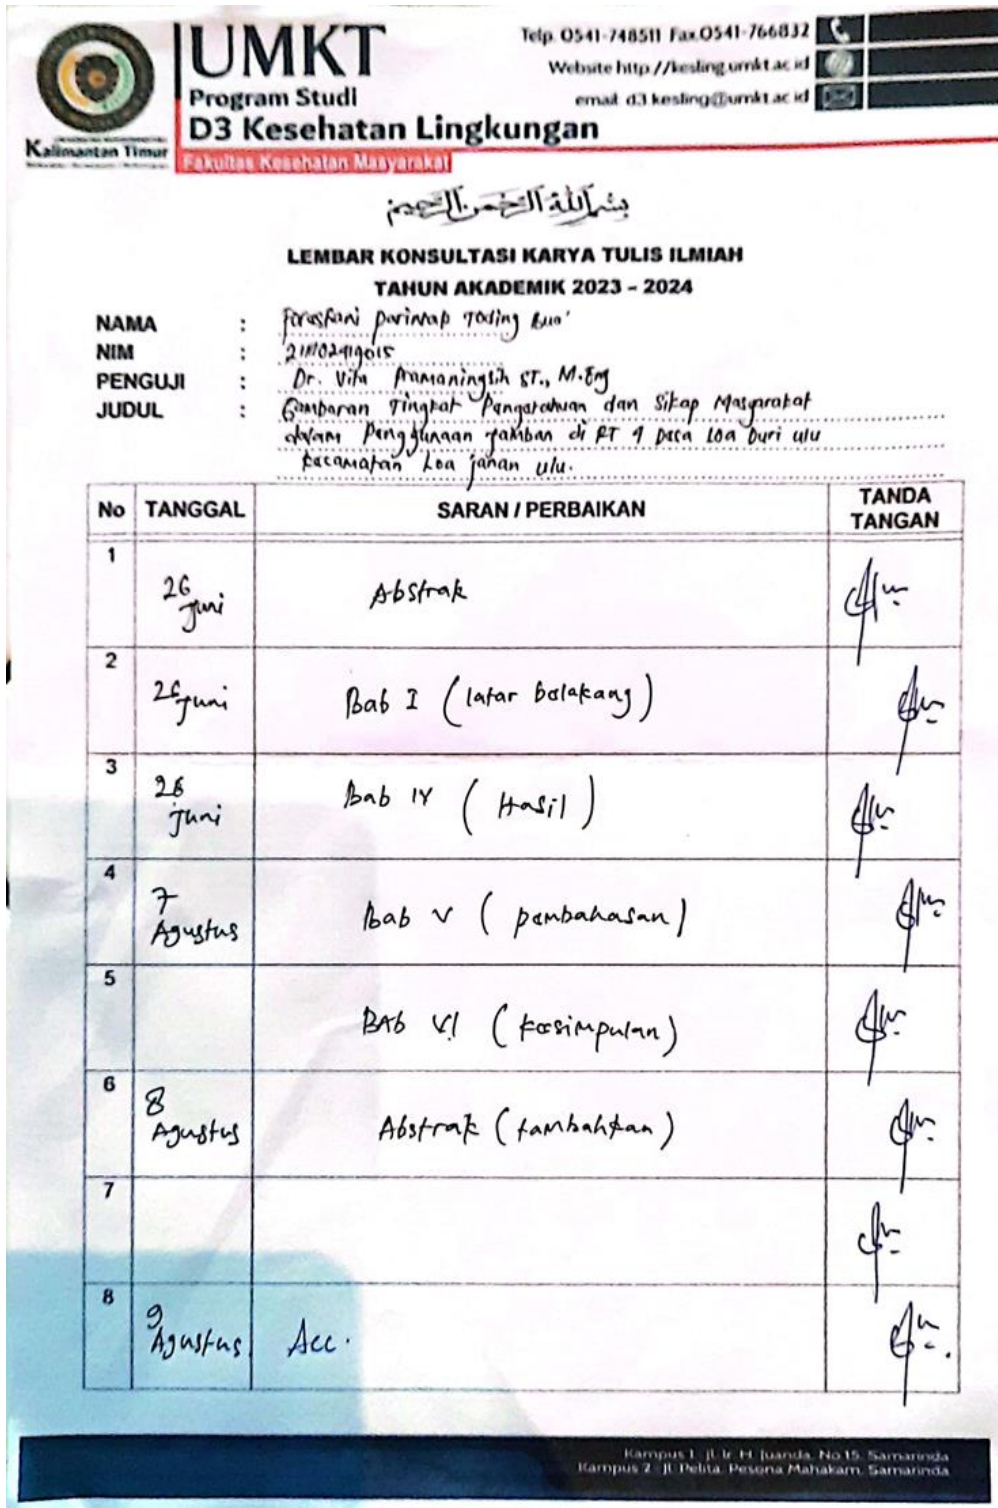 UMKT
Program Studi
D3 Kesehatan Lingkungan
Fakultas Kesehatan Masyarakat
Kalimantan Timur
Telp. 0541-748511 Fax.0541-766832
Website http://kesling.umkt.ac.id
email d3.kesling@umkt.ac.id
بسم الله الرحمن الرحيم
LEMBAR KONSULTASI KARYA TULIS ILMIAH
TAHUN AKADEMIK 2023 – 2024
NAMA : Parinrap Toding Bua'
NIM :
PENGUJI : Dr. Vita Pramaningsih ST., M.Eng
JUDUL : Gambaran Tingkat Pengatahuan dan Sikap Masyarakat
dalam Penggunaan Jamban di RT 9 Desa Loa Duri ulu
Kecamatan Loa janan ulu.
No TANGGAL SARAN / PERBAIKAN TANDA TANGAN
1 26 Juni Abstrak
2 26 Juni Bab I (latar belakang)
3 26 Juni Bab IV (Hasil)
4 7 Agustus Bab V (pembahasan)
5 BAb VI (kesimpulan)
6 8 Agustus Abstrak (tambahkan)
7
8 9 Agustus Acc.
Kampus 1 : jl. Ir. H. Juanda, No 15, Samarinda
Kampus 2 : Jl. Pelita, Pesona Mahakam, Samarinda